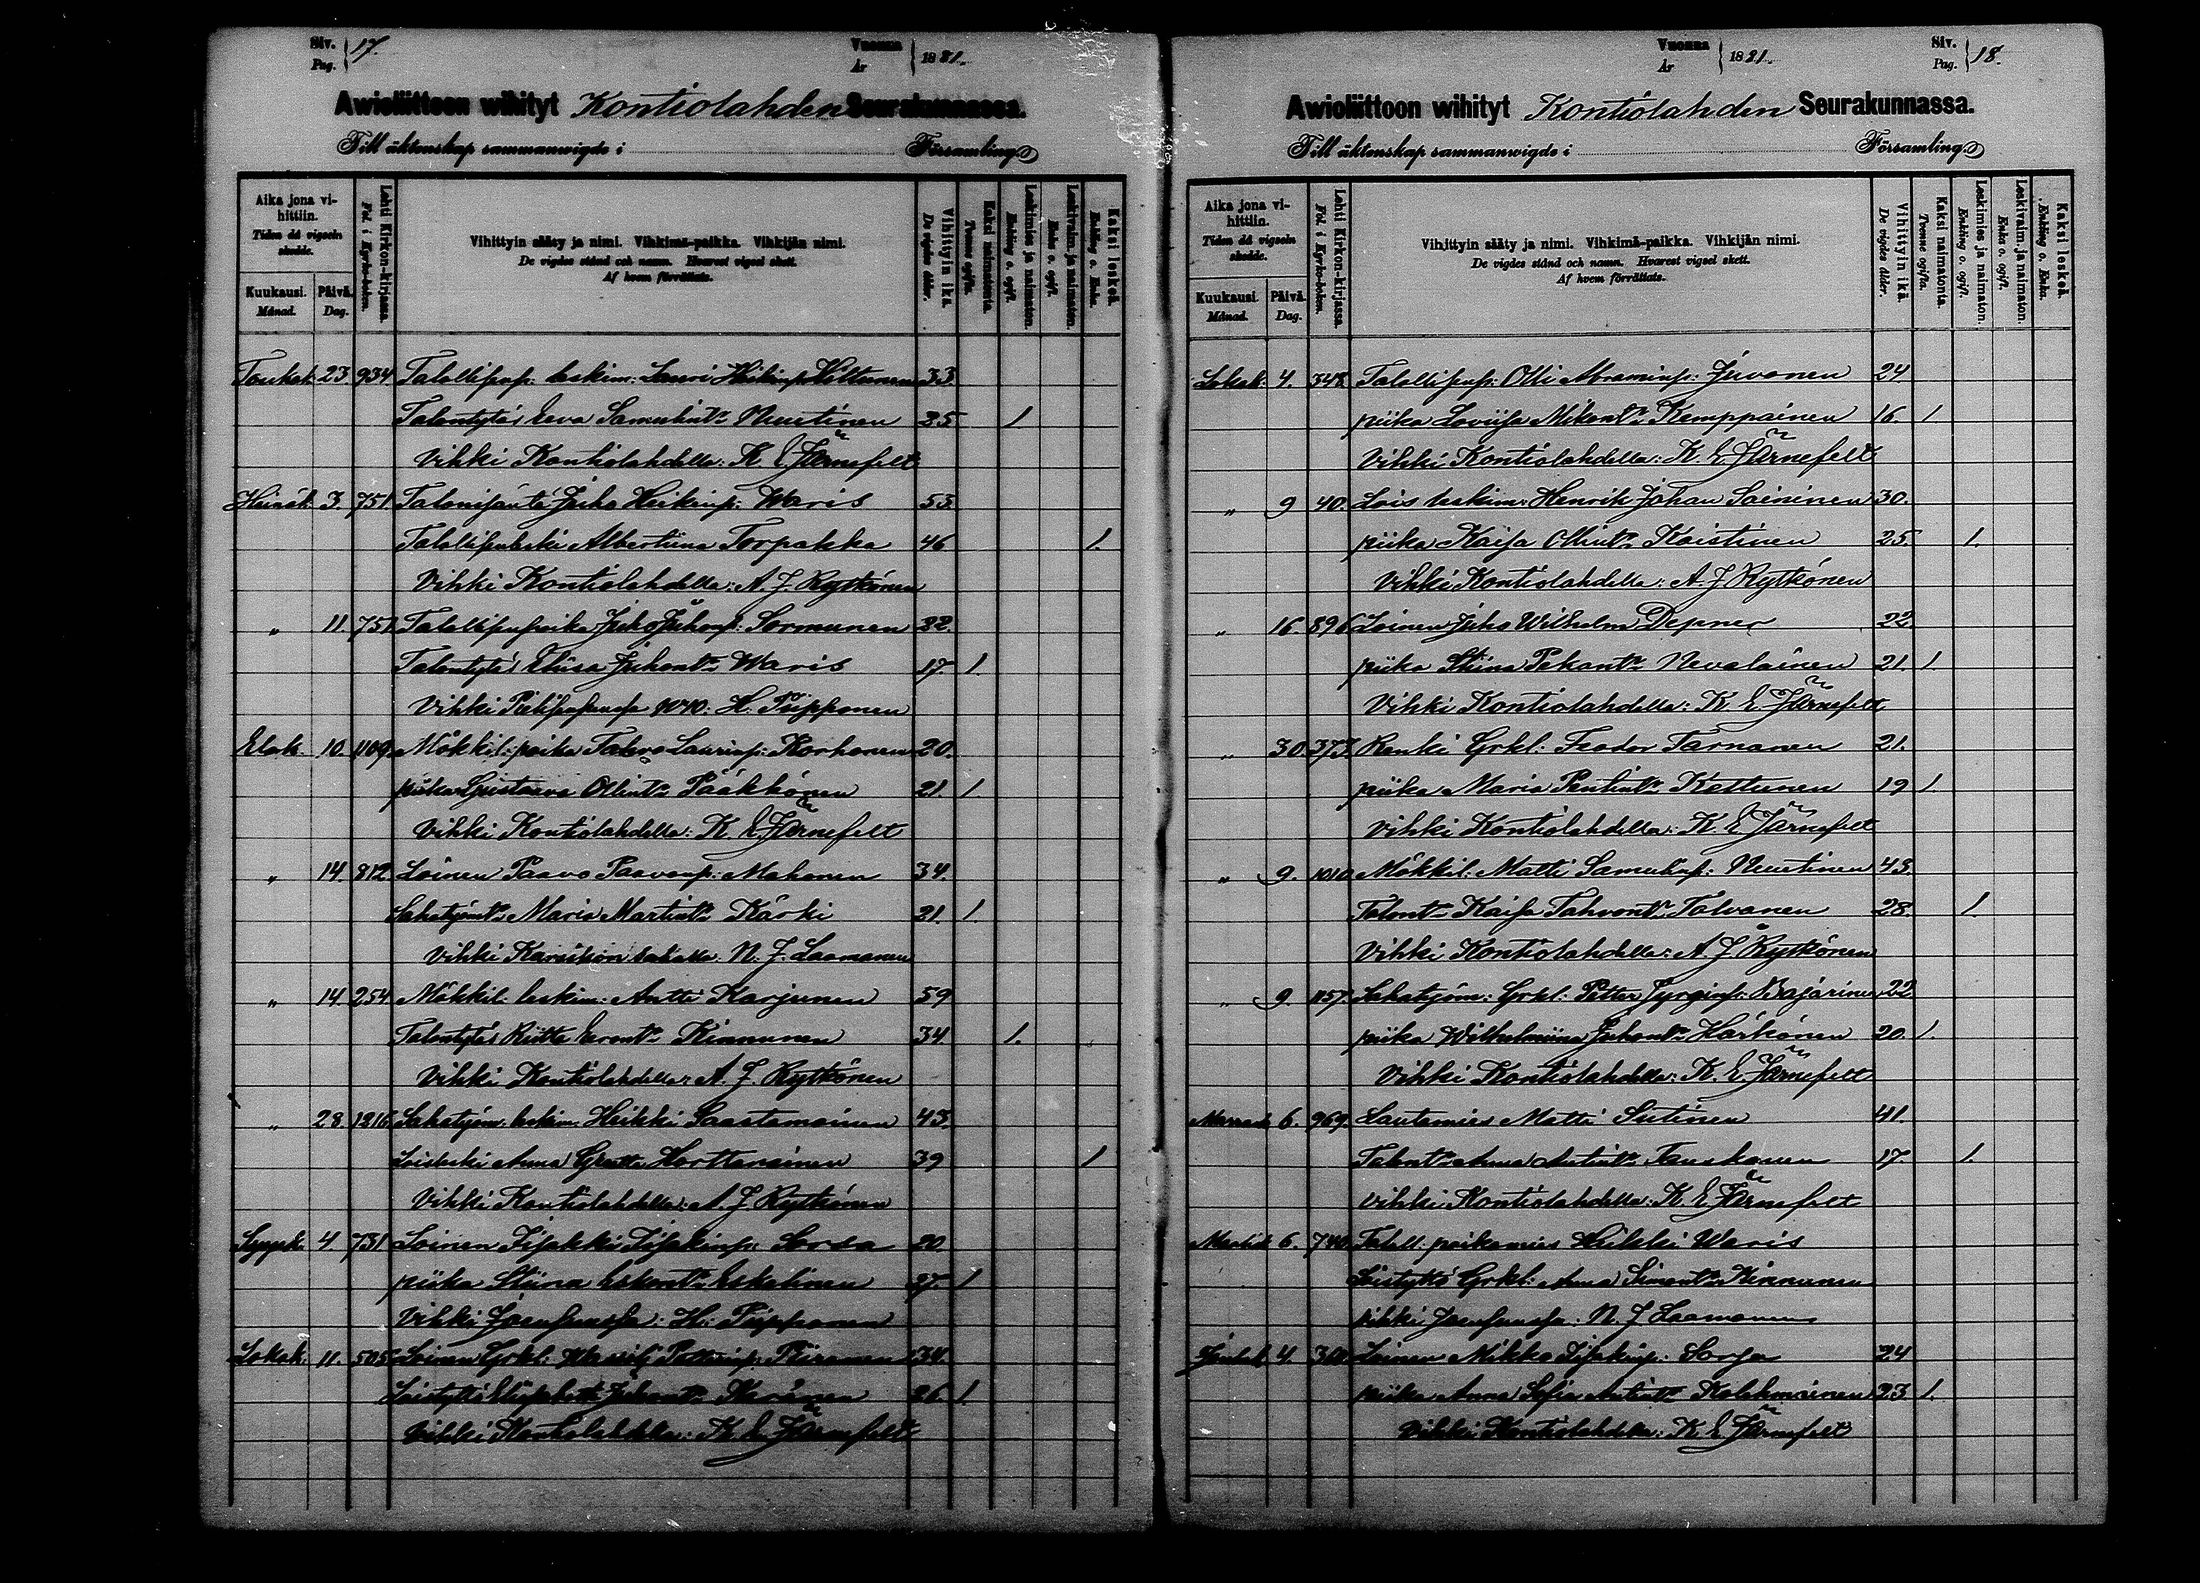 Siv. Pag. 17.
Vuonna År 1881.
Awioliittoon wihityt Kontiolahden Seurakunnassa.
Till äktenskap sammanwigde i Församling
Aika jona vihittiin. Tiden då vigseln skedde.
Kuukausi. Månad.
Päivä. Dag.
Lehti Kirkon-kirjassa. Fol. i Kyrko-boken.
Vihittyin sääty ja nimi. Vihkimä-paikka. Vihkijän nimi.
De vigdes stånd och namn. Hvarest vigsel skett.
Af hvem förrättats.
Vihittyin ikä. De vigdes ålder.
Kaksi naimatonta. Tvenne ogifta.
Leskimies ja naimaton. Enkling o. ogift.
Leskivaim. ja naimaton. Enka o. ogift.
Kaksi leskeä. Enkling o. Enka.
Toukok. 23. 934 leskim: Lauri Heikinp. 33.
Talontytär Eeva Nuutinen 35 1
Vihki Kontiolahdella: K. E. Järnefelt
Heinäk. 3. 751. Talonisäntä Juho Heikinp. Waris 53.
Albertiina Torpakka 46 1.
Vihki Kontiolahdella: A. J. Rytkönen
„ 11. 751 Juho Juhonp: Sormunen 32.
Talontytär Eliisa Juhont. Waris 17. 1.
Vihki H. Piipponen
Elok. 10. 1109. Mökkil: poika Laurinp: Korhonen 20.
piika Gustaava Ollint. Pääkkönen 21. 1
Vihki Kontiolahdella: K. E. Järnefelt
„ 14. 812. Loinen Paavo Paavonp: Mahonen 34.
Maria Martint. Kärki 21. 1
Vihki N. J. Laamanen
„ 14. 254. Mökkil: leskim: Antti Karjunen 59
Talontytär Riitta Kinnunen 34 1.
Vihki Kontiolahdella: A. J. Rytkönen
„ 28 1216. leskim. Heikki Saastamoinen 43.
Loisleski Anna Greetta 39 1
Vihki Kontiolahdella: A. J. Rytkönen
Syysk. 4. 731 Loinen Iisakki Iisakinp: 20
piika Stiina Eskelinen 27. 1
Vihki H. Piipponen
Lokak. 11. 505. Loinen Grkl: Piironen 34.
26. 1.
Vihki Kontiolahdella: K. E. Järnefelt
Vuonna År 1881.
Siv. Pag. 18.
Awioliittoon wihityt Kontiolahden Seurakunnassa.
Till äktenskap sammanwigde i Församling
Aika jona vihittiin. Tiden då vigseln skedde.
Kuukausi. Månad.
Päivä. Dag.
Lehti Kirkon-kirjassa. Fol. i Kyrko-boken.
Vihittyin sääty ja nimi. Vihkimä-paikka. Vihkijän nimi.
De vigdes stånd och namn. Hvarest vigsel skett.
Af hvem förrättats.
Vihittyin ikä. De vigdes ålder.
Kaksi naimatonta. Tvenne ogifta.
Leskimies ja naimaton. Enkling o. ogift.
Leskivaim. ja naimaton. Enka o. ogift.
Kaksi leskeä. Enkling o. Enka.
Lokak. 4. 348. Olli Abraminp: Juvonen 24
piika Loviisa Kemppainen 16. 1.
Vihki Kontiolahdella: K. E. Järnefelt
„ 9 40. Lois leskim: Henrik Johan Soininen 30.
piika Kaisa Ollint. Koistinen 25. 1.
Vihki Kontiolahdella: A. J. Rytkönen
„ 16. 896 Loinen Juho Wilhelm Depner 22
piika Stiina Pekant. Nevalainen 21. 1.
Vihki Kontiolahdella: K. E. Järnefelt
„ 30. 373. Renki Grkl: Feodor Tarnanen 21.
piika Maria Kettunen 19 1.
Vihki Kontiolahdella: K. E. Järnefelt
„ 9. 1010. Mökkil: Matti Nuutinen 43.
Kaisa Tahvont. Tolvanen 28. 1.
Vihki Kontiolahdella: A. J. Rytkönen
„ 9. 1157. Grkl: Petter 22
piika Wilhelmiina Juhont. Härkönen 20. 1.
Vihki Kontiolahdella: K. E. Järnefelt
Marrask. 6. 969. Lautamies Matti Sutinen 41.
Anna Antint. Tanskanen 17. 1.
Vihki Kontiolahdella: K. E. Järnefelt
6. poikamies Heikki Waris
Grkl: Anna Kinnunen
Vihki N. J. Laamanen
Jouluk. 4. Loinen Mikko Iisakinp: Sorsa 24
piika Anna Sofia Antint. Kolehmainen 23. 1.
Vihki Kontiolahdella: K. E. Järnefelt